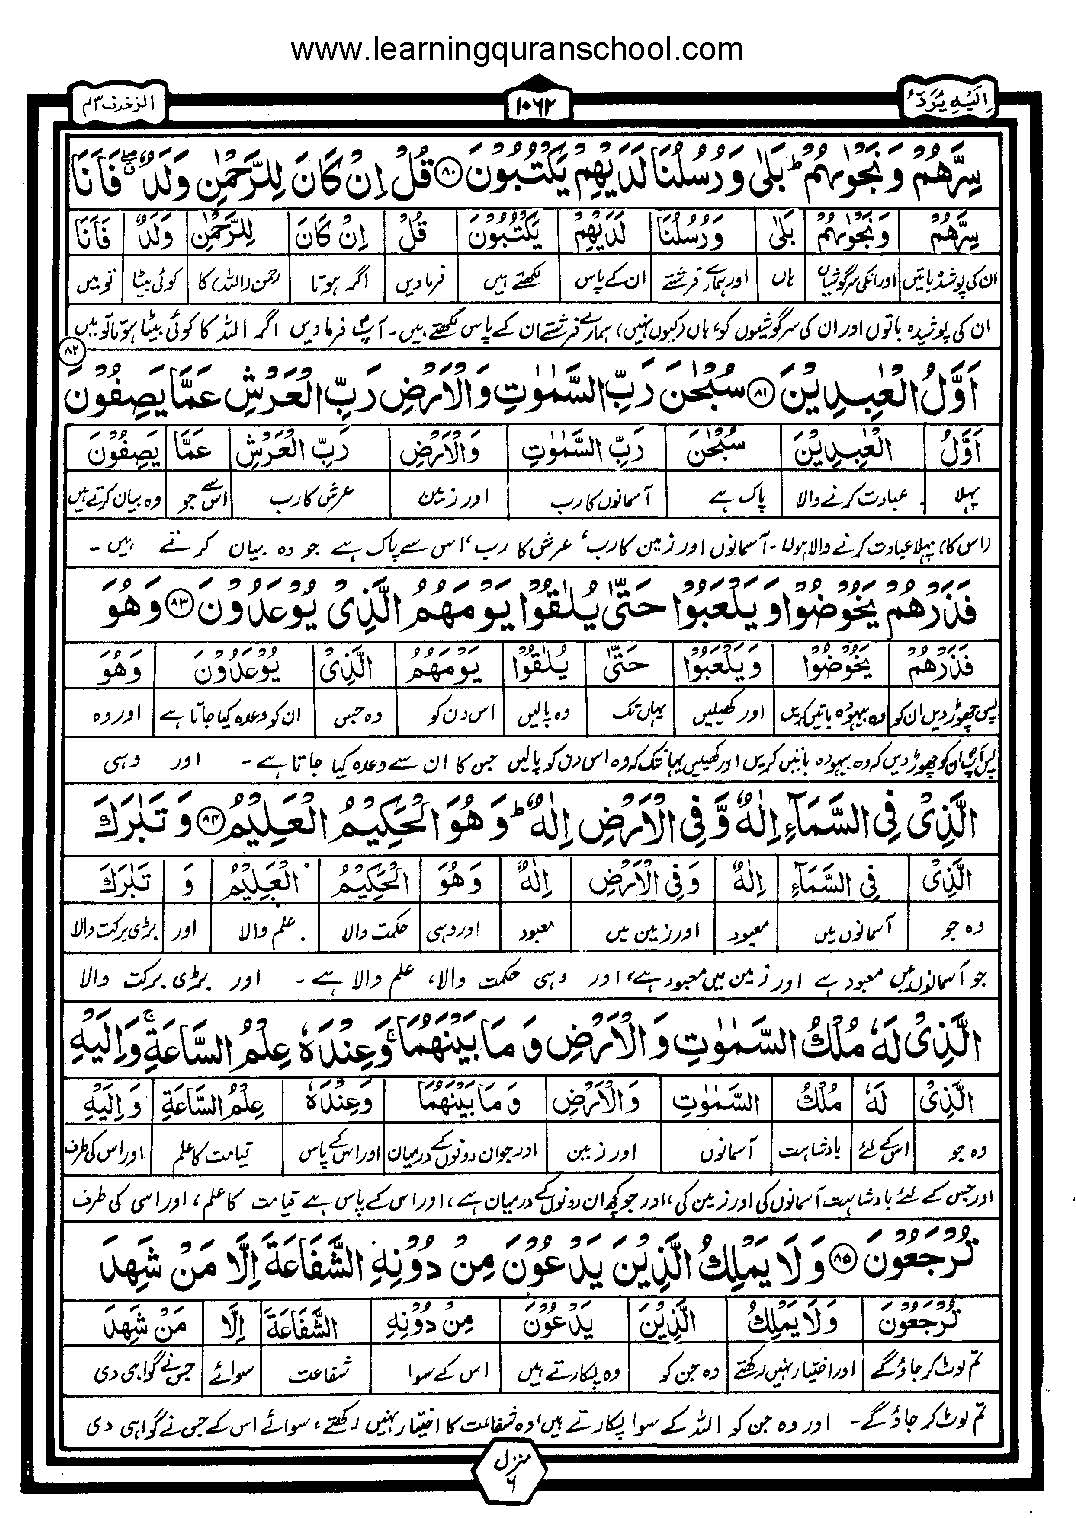 www.learningquranschool.com
اِلَیْهِ یُرَدُّ ١٠٦٢ الزخرف ۴۳
سِرَّهُمْ وَ نَجْوٰىهُمْ ؕ بَلٰى وَ رُسُلُنَا لَدَیْهِمْ یَكْتُبُوْنَ ۸۰ قُلْ اِنْ كَانَ لِلرَّحْمٰنِ وَلَدٌ ۖۗ فَاَنَا
سِرَّهُمْ وَ نَجْوٰىهُمْ بَلٰى وَ رُسُلُنَا لَدَیْهِمْ یَكْتُبُوْنَ قُلْ اِنْ كَانَ لِلرَّحْمٰنِ وَلَدٌ فَاَنَا
ان کی پوشیدہ باتیں اور انکی سرگوشیاں ہاں اور ہمارے فرشتے ان کے پاس لکھتے ہیں فرمادیں اگر ہوتا رحمن (اللہ) کا کوئی بیٹا تو میں
ان کی پوشیدہ باتوں اور ان کی سرگوشیوں کو؟ ہاں (کیوں نہیں) ہمارے فرشتے ان کے پاس لکھتے ہیں۔ آپ فرمادیں اگر اللہ کا کوئی بیٹا ہوتا تو میں
اَوَّلُ الْعٰبِدِیْنَ ۸۱ سُبْحٰنَ رَبِّ السَّمٰوٰتِ وَ الْاَرْضِ رَبِّ الْعَرْشِ عَمَّا یَصِفُوْنَ ۸۲
اَوَّلُ الْعٰبِدِیْنَ سُبْحٰنَ رَبِّ السَّمٰوٰتِ وَ الْاَرْضِ رَبِّ الْعَرْشِ عَمَّا یَصِفُوْنَ
پہلا عبادت کرنے والا پاک ہے آسمانوں کا رب اور زمین عرش کا رب اس سے جو وہ بیان کرتے ہیں
(اس کا) پہلا عبادت کرنے والا ہوتا۔ آسمانوں اور زمین کا رب، عرش کا رب، اس سے پاک ہے جو وہ بیان کرتے ہیں۔
فَذَرْهُمْ یَخُوْضُوْا وَ یَلْعَبُوْا حَتّٰى یُلٰقُوْا یَوْمَهُمُ الَّذِیْ یُوْعَدُوْنَ ۸۳ وَ هُوَ
فَذَرْهُمْ یَخُوْضُوْا وَ یَلْعَبُوْا حَتّٰى یُلٰقُوْا یَوْمَهُمُ الَّذِیْ یُوْعَدُوْنَ وَ هُوَ
پس چھوڑ دیں ان کو وہ بیہودہ باتیں کریں اور کھیلیں یہاں تک وہ پالیں اس دن کو وہ جس ان کو وعدہ کیا جاتا ہے اور وہ
پس آپ ان کو چھوڑ دیں کہ وہ بیہودہ باتیں کریں اور کھیلیں یہانتک کہ وہ اس دن کو پالیں جس کا ان سے وعدہ کیا جاتا ہے۔ اور وہی
الَّذِیْ فِی السَّمَآءِ اِلٰهٌ وَّ فِی الْاَرْضِ اِلٰهٌ ؕ وَ هُوَ الْحَكِیْمُ الْعَلِیْمُ ۸۴ وَ تَبٰرَكَ
الَّذِیْ فِی السَّمَآءِ اِلٰهٌ وَ فِی الْاَرْضِ اِلٰهٌ وَ هُوَ الْحَكِیْمُ الْعَلِیْمُ وَ تَبٰرَكَ
وہ جو آسمانوں میں معبود اور زمین میں معبود اور وہی حکمت والا علم والا اور بڑی برکت والا
جو آسمانوں میں معبود ہے اور زمین میں معبود ہے، اور وہی حکمت والا، علم والا ہے۔ اور بڑی برکت والا
الَّذِیْ لَهٗ مُلْكُ السَّمٰوٰتِ وَ الْاَرْضِ وَ مَا بَیْنَهُمَا ۚ وَ عِنْدَهٗ عِلْمُ السَّاعَةِ ۚ وَ اِلَیْهِ
الَّذِیْ لَهٗ مُلْكُ السَّمٰوٰتِ وَ الْاَرْضِ وَ مَا بَیْنَهُمَا وَ عِنْدَهٗ عِلْمُ السَّاعَةِ وَ اِلَیْهِ
وہ جو اس کے لئے بادشاہت آسمانوں اور زمین اور جو ان دونوں کے درمیان اور اس کے پاس قیامت کا علم اور اس کی طرف
اور جس کے لئے بادشاہت آسمانوں کی اور زمین کی، اور جو کچھ ان دونوں کے درمیان ہے، اور اس کے پاس ہے قیامت کا علم، اور اسی کی طرف
تُرْجَعُوْنَ ۸۵ وَ لَا یَمْلِكُ الَّذِیْنَ یَدْعُوْنَ مِنْ دُوْنِهِ الشَّفَاعَةَ اِلَّا مَنْ شَهِدَ
تُرْجَعُوْنَ وَ لَا یَمْلِكُ الَّذِیْنَ یَدْعُوْنَ مِنْ دُوْنِهِ الشَّفَاعَةَ اِلَّا مَنْ شَهِدَ
تم لوٹ کر جاؤ گے اور اختیار نہیں رکھتے وہ جن کو وہ پکارتے ہیں اس کے سوا شفاعت سوائے جس نے گواہی دی
تم لوٹ کر جاؤ گے۔ اور وہ جن کو اللہ کے سوا پکارتے ہیں وہ شفاعت کا اختیار نہیں رکھتے، سوائے اس کے جس نے گواہی دی
منزل ۶